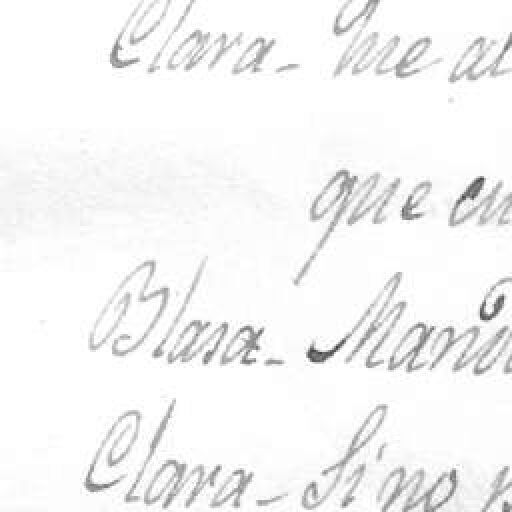 Clara- Me al
que en
Blasa- Mano
Clara- Si no